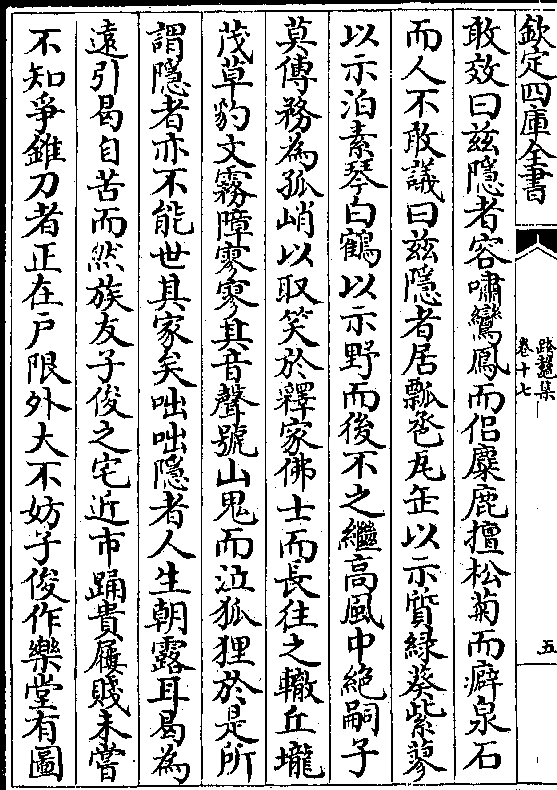 欽定四庫全書
跨鼇集
卷十七
五
敢效曰兹隱者客嘯鸞鳳而侣麋鹿擅松菊而癖泉石
而人不敢議曰兹隱者居瓢卮瓦缶以示質緑葵紫蓼
以示泊素琴白鶴以示野而後不之繼高風中絶嗣子
莫傳務為孤峭以取笑於釋家佛士而長往之轍丘壠
茂草豹文霧障寥寥其音聲號山鬼而泣狐狸於是所
謂隱者亦不能世其家矣咄咄隱者人生朝露耳曷為
遠引曷自苦而然族友子俊之宅近市踊貴屨賤未嘗
不知爭錐刀者正在戶限外大不妨子俊作樂堂有圖